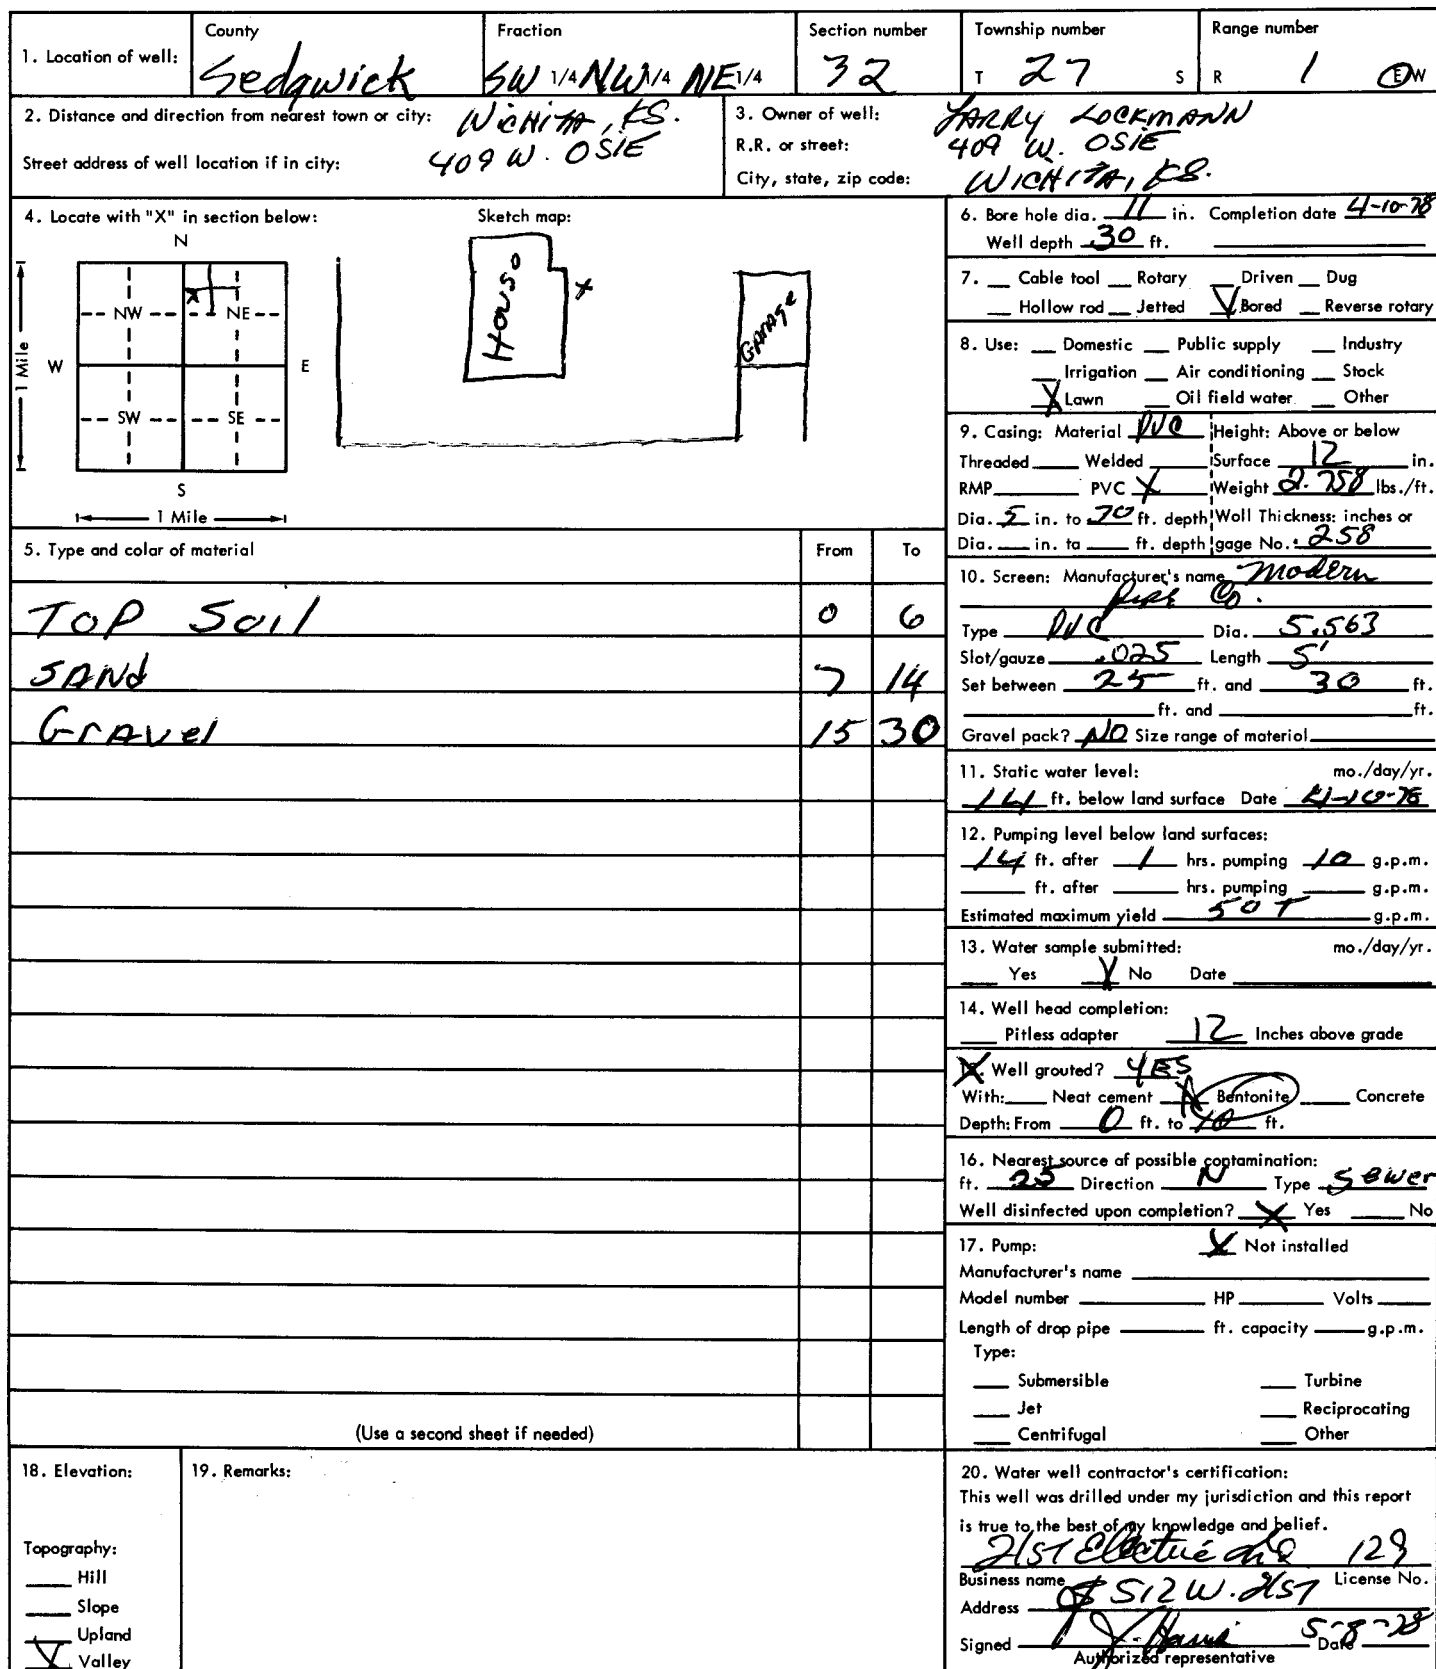 1. Location of well: County Sedgwick Fraction SW 1/4 NW 1/4 NE 1/4 Section number 32 Township number T 27 S Range number R 1 E W
2. Distance and direction from nearest town or city: Wichita, KS.
Street address of well location if in city: 409 W. OSIE
3. Owner of well: LARRY LOCKMANN
R.R. or street: 409 W. OSIE
City, state, zip code: WICHITA, KS.
4. Locate with "X" in section below:
N
NW NE
W E
SW SE
S
1 Mile
1 Mile
X
Sketch map:
House
X
GARAGE
5. Type and color of material From To
TOP Soil 0 6
SAND 7 14
Gravel 15 30
(Use a second sheet if needed)
6. Bore hole dia. 11 in. Completion date 4-10-78
Well depth 30 ft.
7. Cable tool Rotary Driven Dug
Hollow rod Jetted Bored Reverse rotary
8. Use: Domestic Public supply Industry
Irrigation Air conditioning Stock
X Lawn Oil field water Other
9. Casing: Material PVC Height: Above or below
Threaded Welded Surface 12 in.
RMP PVC X Weight 2.758 lbs./ft.
Dia. 5 in. to ft. depth Wall Thickness: inches or
Dia. in. to ft. depth gage No. .258
10. Screen: Manufacturer's name Modern
Pipe Co.
Type PVC Dia. 5.563
Slot/gauze .025 Length 5'
Set between 25 ft. and 30 ft.
ft. and ft.
Gravel pack? NO Size range of material
11. Static water level: mo./day/yr.
14 ft. below land surface Date 4-10-78
12. Pumping level below land surfaces:
14 ft. after 1 hrs. pumping 10 g.p.m.
ft. after hrs. pumping g.p.m.
Estimated maximum yield 50 g.p.m.
13. Water sample submitted: mo./day/yr.
Yes X No Date
14. Well head completion:
Pitless adapter 12 Inches above grade
Well grouted? YES
With: Neat cement X Bentonite Concrete
Depth: From 0 ft. to 10 ft.
16. Nearest source of possible contamination:
ft. 25 Direction N Type Sewer
Well disinfected upon completion? X Yes No
17. Pump: X Not installed
Manufacturer's name
Model number HP Volts
Length of drop pipe ft. capacity g.p.m.
Type:
Submersible Turbine
Jet Reciprocating
Centrifugal Other
18. Elevation:
Topography:
Hill
Slope
Upland
X Valley
19. Remarks:
20. Water well contractor's certification:
This well was drilled under my jurisdiction and this report
is true to the best of my knowledge and belief.
21st Electric 129
Business name License No.
Address 512 W. 21st
Signed J. Harris Date 5-8-78
Authorized representative